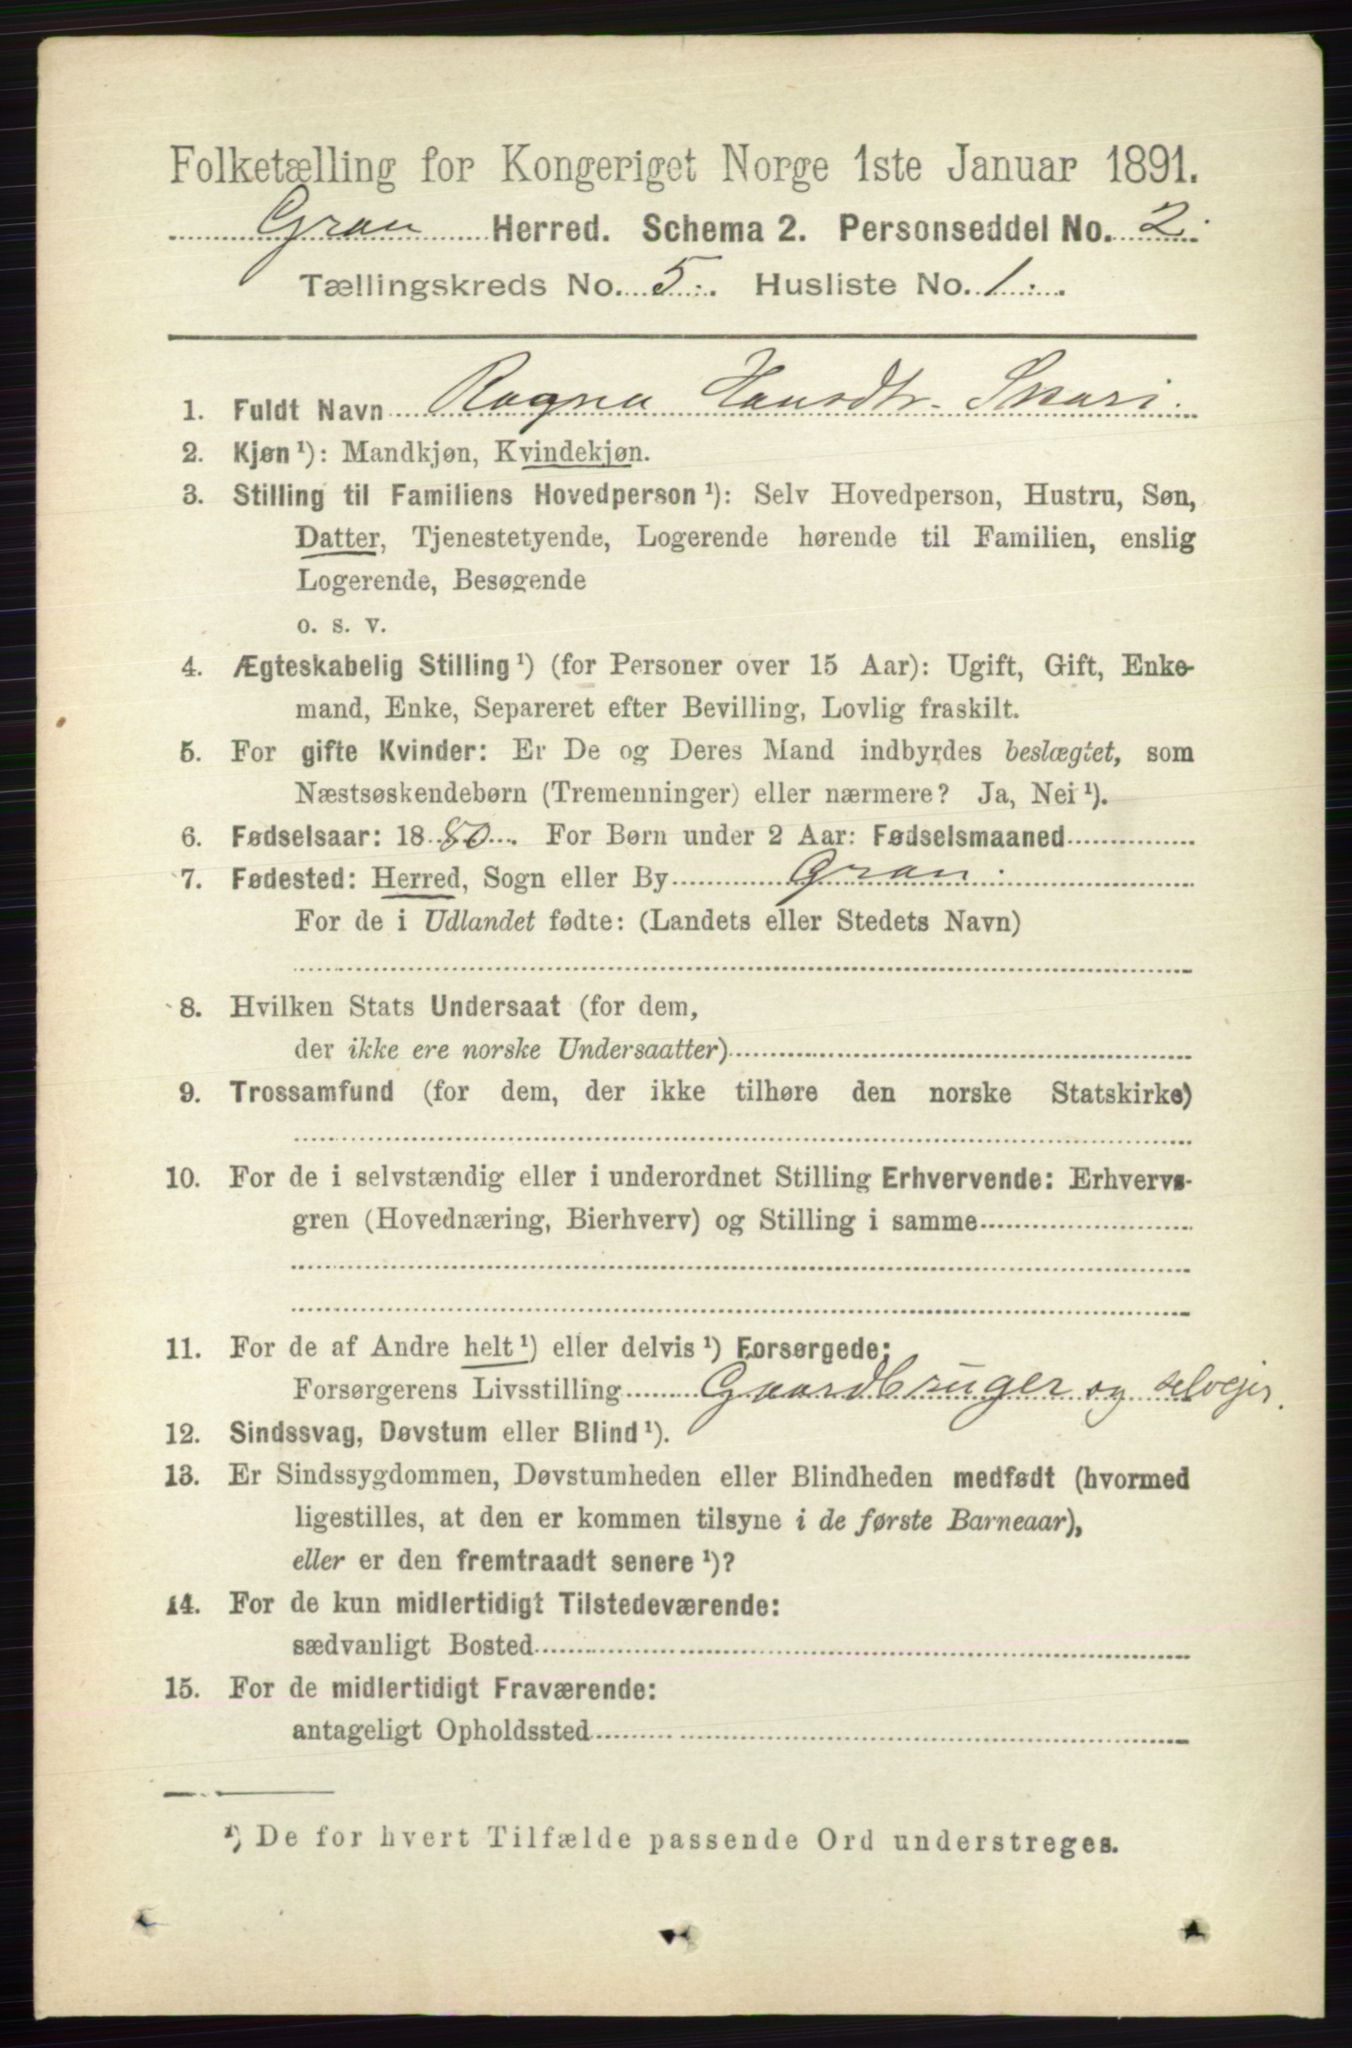 Folketælling for Kongeriget Norge 1ste Januar 1891.
Gran Herred. Schema 2. Personseddel No. 2.
Tællingskreds No. 5. Husliste No. 1.
1. Fuldt Navn Ragna Hansdtr.
2. Kjøn¹): Mandkjøn, Kvindekjøn.
3. Stilling til Familiens Hovedperson¹): Selv Hovedperson, Hustru, Søn,
Datter, Tjenestetyende, Logerende hørende til Familien, enslig
Logerende, Besøgende
o. s. v.
4. Ægteskabelig Stilling¹) (for Personer over 15 Aar): Ugift, Gift, Enke-
mand, Enke, Separeret efter Bevilling, Lovlig fraskilt.
5. For gifte Kvinder: Er De og Deres Mand indbyrdes beslægtet, som
Næstsøskendebørn (Tremenninger) eller nærmere? Ja, Nei¹).
6. Fødselsaar: 1880. For Børn under 2 Aar: Fødselsmaaned
7. Fødested: Herred, Sogn eller By Gran.
For de i Udlandet fødte: (Landets eller Stedets Navn)
8. Hvilken Stats Undersaat (for dem,
der ikke ere norske Undersaatter)
9. Trossamfund (for dem, der ikke tilhøre den norske Statskirke)
10. For de i selvstændig eller i underordnet Stilling Erhvervende: Erhvervs-
gren (Hovednæring, Bierhverv) og Stilling i samme
11. For de af Andre helt¹) eller delvis¹) Forsørgede:
Forsørgerens Livsstilling Gaardbruger og selvejer.
12. Sindssvag, Døvstum eller Blind¹).
13. Er Sindssygdommen, Døvstumheden eller Blindheden medfødt (hvormed
ligestilles, at den er kommen tilsyne i de første Barneaar),
eller er den fremtraadt senere¹)?
14. For de kun midlertidigt Tilstedeværende:
sædvanligt Bosted
15. For de midlertidigt Fraværende:
antageligt Opholdssted
¹) De for hvert Tilfælde passende Ord understreges.